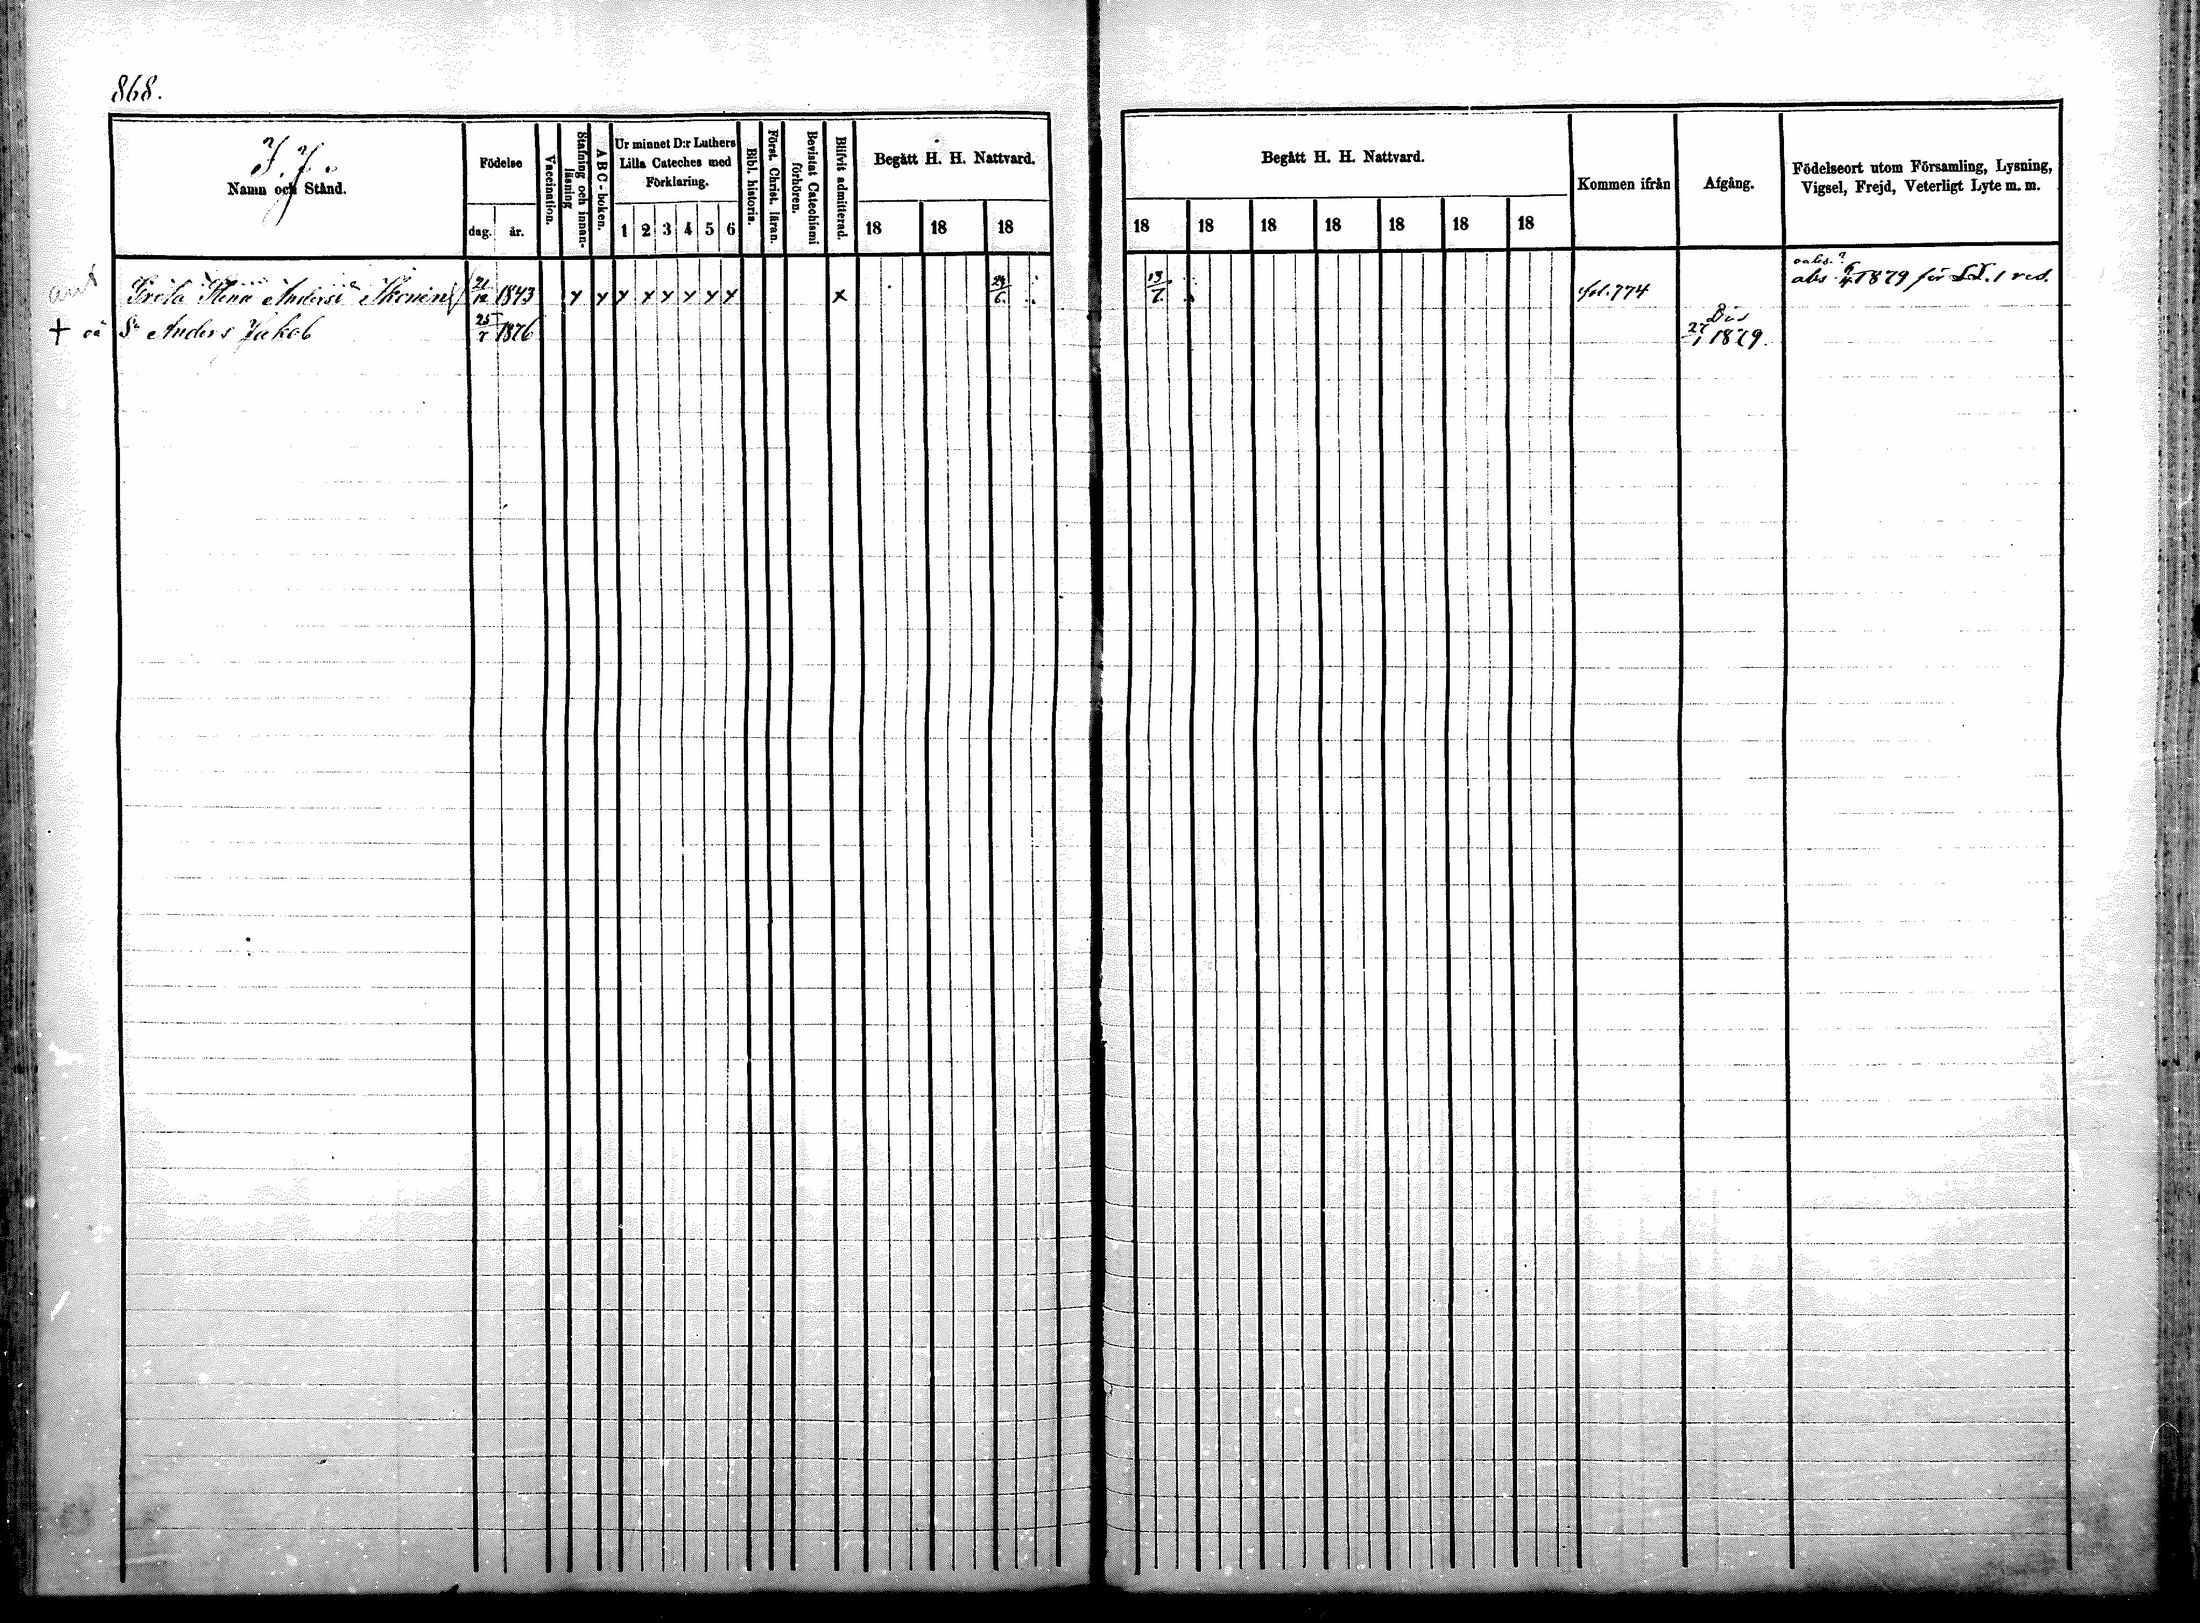 868.
I. J.
Namn och Stånd.
Födelse
dag. år.
Vaccination.
Stafning och innan-läsning
A B C-boken.
Ur minnet D:r Luthers
Lilla Cateches med
Förklaring.
1 2 3 4 5 6
Bibl. historia.
Först. Christ. läran.
Bevistat Catechismi förhören.
Blifvit admitterad.
Begått H. H. Nattvard.
18 18 18
Begått H. H. Nattvard.
18 18 18 18 18 18 18
Kommen ifrån
Afgång.
Födelseort utom Församling, Lysning,
Vigsel, Frejd, Veterligt Lyte m. m.
Greta Anders 21/12 1843 y y y y y y y y x 24/6. 13/7. fol. 774 abs 1879 för 1 res.
+ oä Sn Anders Jakob 25/7 1876 Död 27/1 1879.